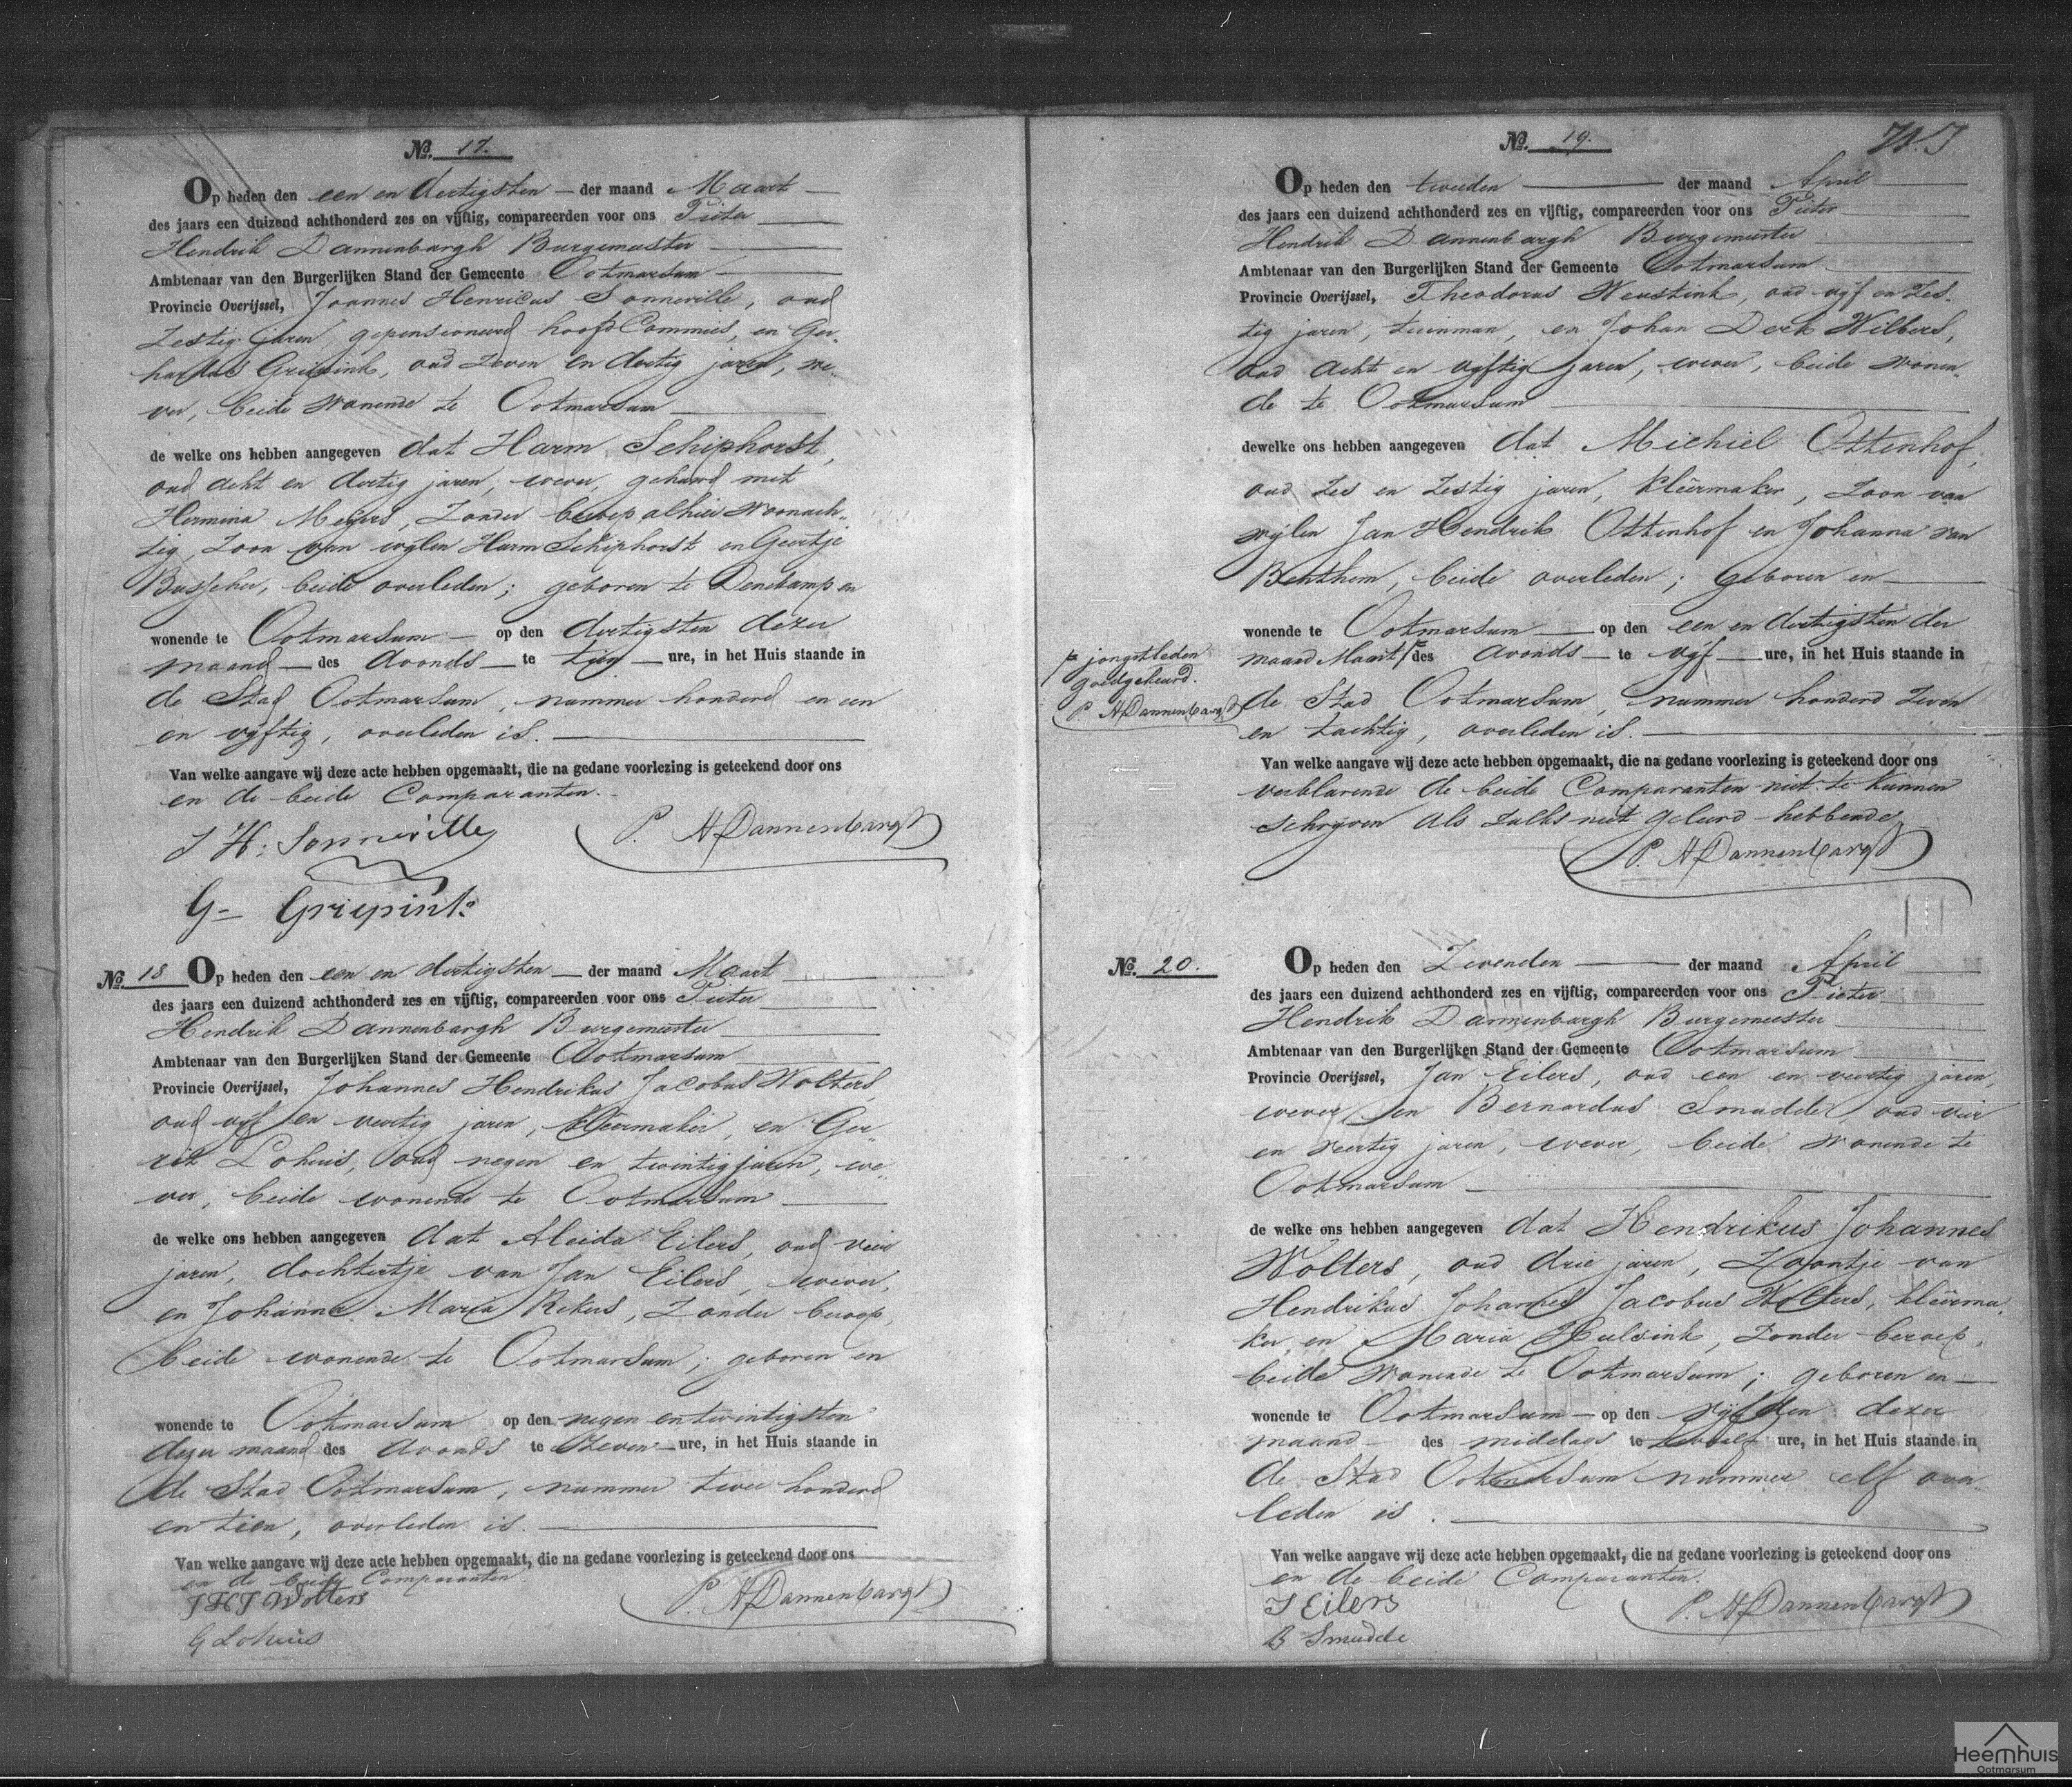 No. 17.
Op heden den een en dertigsten — der maand Maart
des jaars een duizend achthonderd zes en vijftig, compareerden voor ons Pieter
Hendrik Dannenbargh Burgemeester
Ambtenaar van den Burgerlijken Stand der Gemeente Ootmarsum
Provincie Overijssel, Joannes Henricus Sonneville, oud
Zestig jaren, gepensioneerd hoofd Commies, en Ger-
hardus Griepink, oud Zeven en dertig jaren, we-
ver, beide wonende te Ootmarsum
de welke ons hebben aangegeven dat Harm Schiphorst,
oud acht en dertig jaren, wever, gehuwd met
Hermina Meijers, Zonder beroep alhier woonach-
tig, Zoon van wijlen Harm Schiphorst en Geertje
Busscher, beide overleden; geboren te Denekamp en
wonende te Ootmarsum — op den dertigsten dezer
maand — des avonds — te tien — ure, in het Huis staande in
de Stad Ootmarsum, nummer honderd en een
en vijftig, overleden is.
Van welke aangave wij deze acte hebben opgemaakt, die na gedane voorlezing is geteekend door ons
en de beide Comparanten.
J H: Sonneville
P. H Dannenbargh
G- Griepink
No. 18
Op heden den een en dertigsten — der maand Maart
des jaars een duizend achthonderd zes en vijftig, compareerden voor ons Pieter
Hendrik Dannenbargh Burgemeester
Ambtenaar van den Burgerlijken Stand der Gemeente Ootmarsum
Provincie Overijssel, Johannes Hendrikus Jacobus Wolters,
oud vijf en veertig jaren, kleêrmaker, en Ger-
rit Lohuis, oud negen en twintig jaren, we-
ver, beide wonende te Ootmarsum
de welke ons hebben aangegeven dat Aleida Eilers, oud vier
jaren, dochtertje van Jan Eilers, wever,
en Johanna Maria Rekers, Zonder beroep,
beide wonende te Ootmarsum; geboren en
wonende te Ootmarsum op den negen en twintigsten
dezer maand des avonds te Zeven — ure, in het Huis staande in
de Stad Ootmarsum, nummer twee honderd
en tien, overleden is.
Van welke aangave wij deze acte hebben opgemaakt, die na gedane voorlezing is geteekend door ons
en de beide Comparanten
J H J Wolters
P. H Dannenbargh
G Lohuis
No. 19.
Op heden den tweeden — der maand April
des jaars een duizend achthonderd zes en vijftig, compareerden voor ons Pieter
Hendrik Dannenbargh Burgemeester
Ambtenaar van den Burgerlijken Stand der Gemeente Ootmarsum
Provincie Overijssel, Theodorus Neustink, oud vijf en Zes-
tig jaren, tuinman, en Johan Derk Wilbers,
oud acht en vijftig jaren, wever, beide wonen-
de te Ootmarsum
dewelke ons hebben aangegeven dat Michiel Ottenhof,
oud Zes en Zestig jaren, kleêrmaker, Zoon van
wijlen Jan Hendrik Ottenhof en Johanna van
Benthem, beide overleden; geboren en
wonende te Ootmarsum — op den een en dertigsten der
maand Maart des avonds — te vijf — ure, in het Huis staande in
jongstleden
goedgekeurd.
P. H Dannenbargh
de Stad Ootmarsum, nummer honderd Zeven
en tachtig, overleden is.
Van welke aangave wij deze acte hebben opgemaakt, die na gedane voorlezing is geteekend door ons
verklarende de beide Comparanten niet te kunnen
schrijven als zulks niet geleerd hebbende
P. H Dannenbargh
No. 20.
Op heden den Zevenden — der maand April
des jaars een duizend achthonderd zes en vijftig, compareerden voor ons Pieter
Hendrik Dannenbargh Burgemeester
Ambtenaar van den Burgerlijken Stand der Gemeente Ootmarsum
Provincie Overijssel, Jan Eilers, oud een en veertig jaren,
wever en Bernardus Smudde, oud vier
en veertig jaren, wever, beide wonende te
Ootmarsum
de welke ons hebben aangegeven dat Hendrikus Johannes
Wolters, oud drie jaren, Zoontje van
Hendrikus Johannes Jacobus Wolters, kleêrma-
ker, en Maria Hulsink, Zonder beroep,
beide wonende te Ootmarsum; geboren en —
wonende te Ootmarsum — op den vijfden dezer
maand — des middags te twaalf ure, in het Huis staande in
de Stad Ootmarsum nummer elf over-
leden is.
Van welke aangave wij deze acte hebben opgemaakt, die na gedane voorlezing is geteekend door ons
en de beide Comparanten.
J Eilers
P. H Dannenbargh
B Smudde
Heemhuis
Ootmarsum